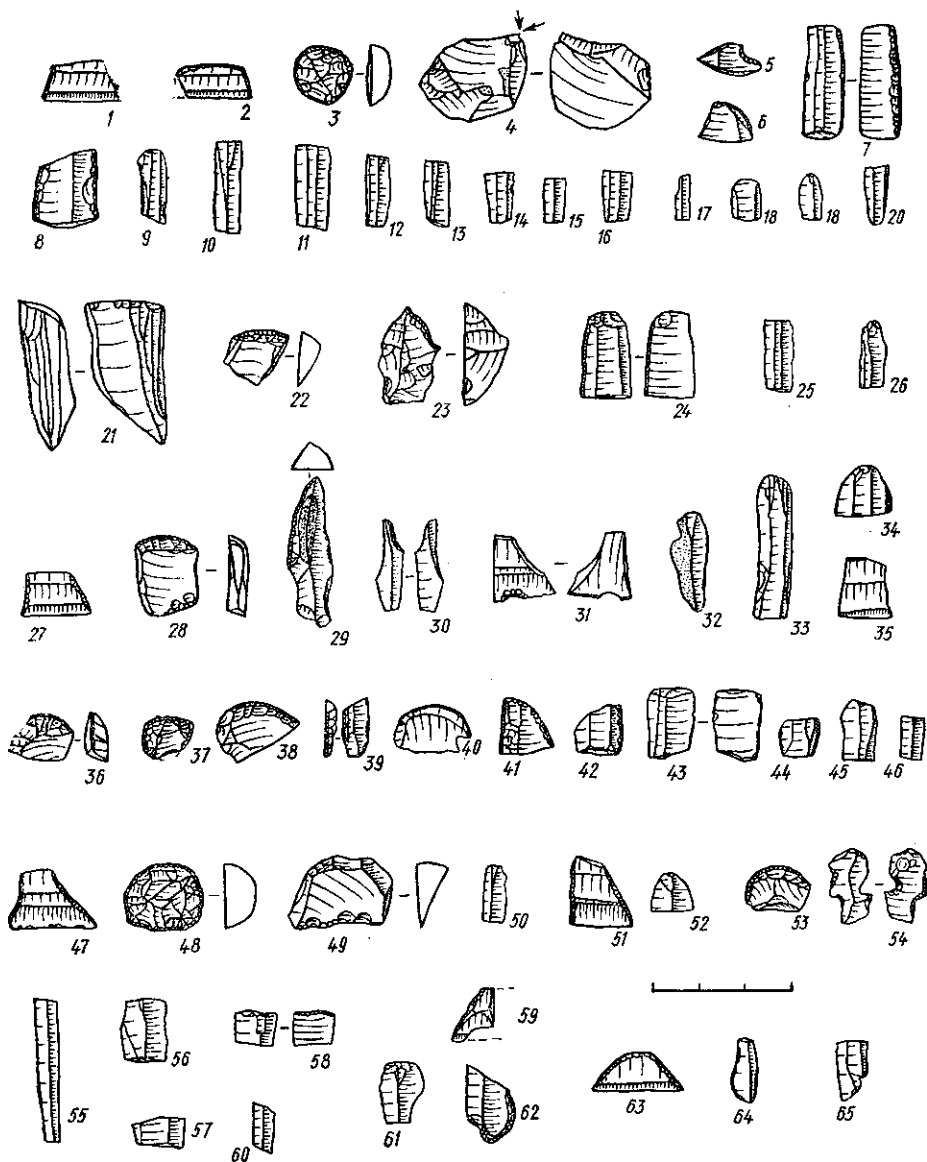 1 2 3 4 5 6 7
8 9 10 11 12 13 14 15 16 17 18 18 20
21 22 23 24 25 26
27 28 29 30 31 32 33 34 35
36 37 38 39 40 41 42 43 44 45 46
47 48 49 50 51 52 53 54
55 56 58 59
57 60 61 62 63 64 65